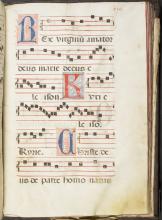 Rex virginū amator
deus marie decus e
leison. Kyrie
leiso.
Kyrie. Christe de
us de patre homo natus